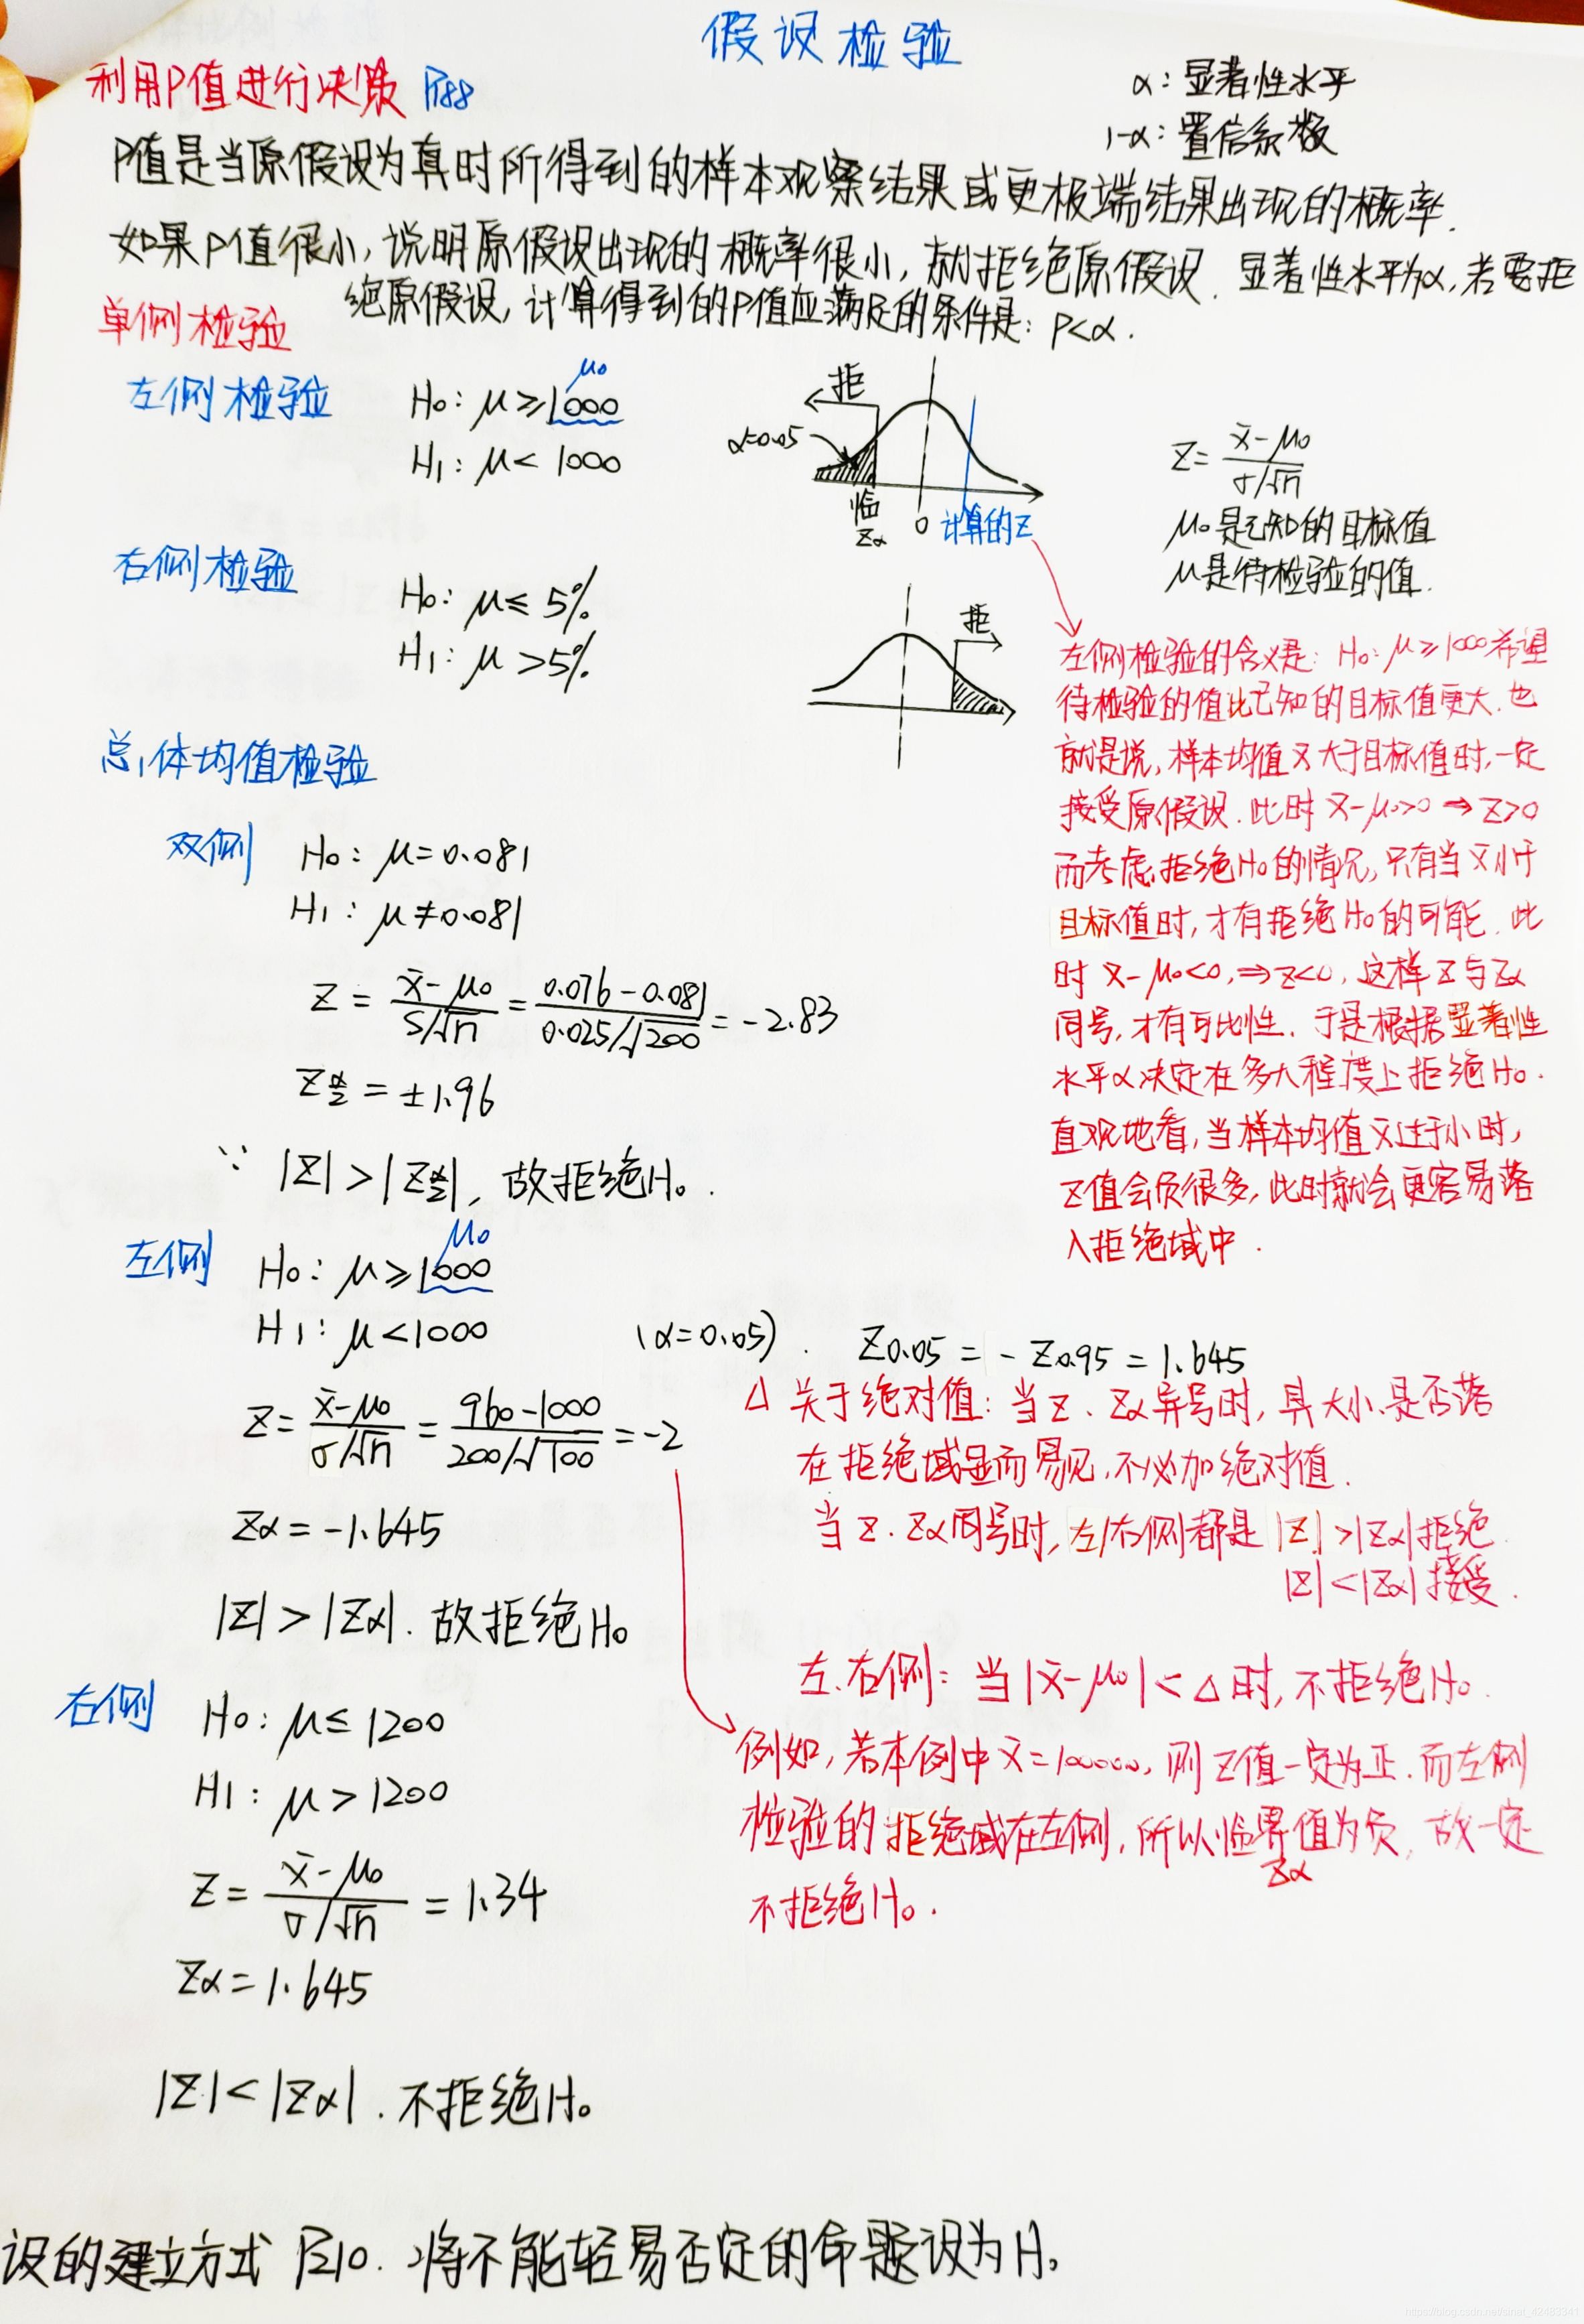 假设检验
利用P值进行决策 P188
α：显著性水平
1-α：置信系数
P值是当原假设为真时所得到的样本观察结果或更极端结果出现的概率.
如果P值很小，说明原假设出现的概率很小，就拒绝原假设. 显著性水平为α，若要拒
绝原假设，计算得到的P值应满足的条件是：P<α.
单侧检验
左侧检验
μ₀
H₀：μ≥1000
H₁：μ<1000
拒
α=0.05
临
Zα
0
计算的Z
Z=(x̄-μ₀)/(σ/√n)
μ₀是已知的目标值
μ是待检验的值.
右侧检验
H₀：μ≤5%
H₁：μ>5%
拒
左侧检验的含义是：H₀：μ≥1000希望
待检验的值比已知的目标值更大.也
就是说，样本均值x̄大于目标值时，一定
接受原假设.此时x̄-μ₀>0⇒Z>0
而考虑拒绝H₀的情况，只有当x̄小于
目标值时，才有拒绝H₀的可能.此
时x̄-μ₀<0，⇒Z<0，这样Z与Zα
同号，才有可比性.于是根据显著性
水平α决定在多大程度上拒绝H₀.
直观地看，当样本均值x̄过于小时，
Z值会负很多，此时就会更容易落
入拒绝域中.
总体均值检验
双侧
H₀：μ=0.081
H₁：μ≠0.081
Z=(x̄-μ₀)/(S/√n)=(0.076-0.081)/(0.025/√200)=-2.83
Zα/2=±1.96
∵ |Z|>|Zα/2|，故拒绝H₀.
左侧
μ₀
H₀：μ≥1000
H₁：μ<1000
(α=0.05). Z0.05=-Z0.95=1.645
Z=(x̄-μ₀)/(σ/√n)=(960-1000)/(200/√100)=-2
Zα=-1.645
|Z|>|Zα|.故拒绝H₀
△关于绝对值：当Z、Zα异号时，其大小、是否落
在拒绝域显而易见，不必加绝对值.
当Z、Zα同号时，左/右侧都是|Z|>|Zα|拒绝
|Z|<|Zα|接受.
左、右侧：当|x̄-μ₀|<△时，不拒绝H₀.
例如，若本例中x̄=100000，则Z值一定为正.而左侧
检验的拒绝域在左侧，所以临界值为负，故一定
Zα
不拒绝H₀.
右侧
H₀：μ≤1200
H1：μ>1200
Z=(x̄-μ₀)/(σ/√n)=1.34
Zα=1.645
|Z|<|Zα|.不拒绝H₀
设的建立方式 P210.将不能轻易否定的命题设为H₀